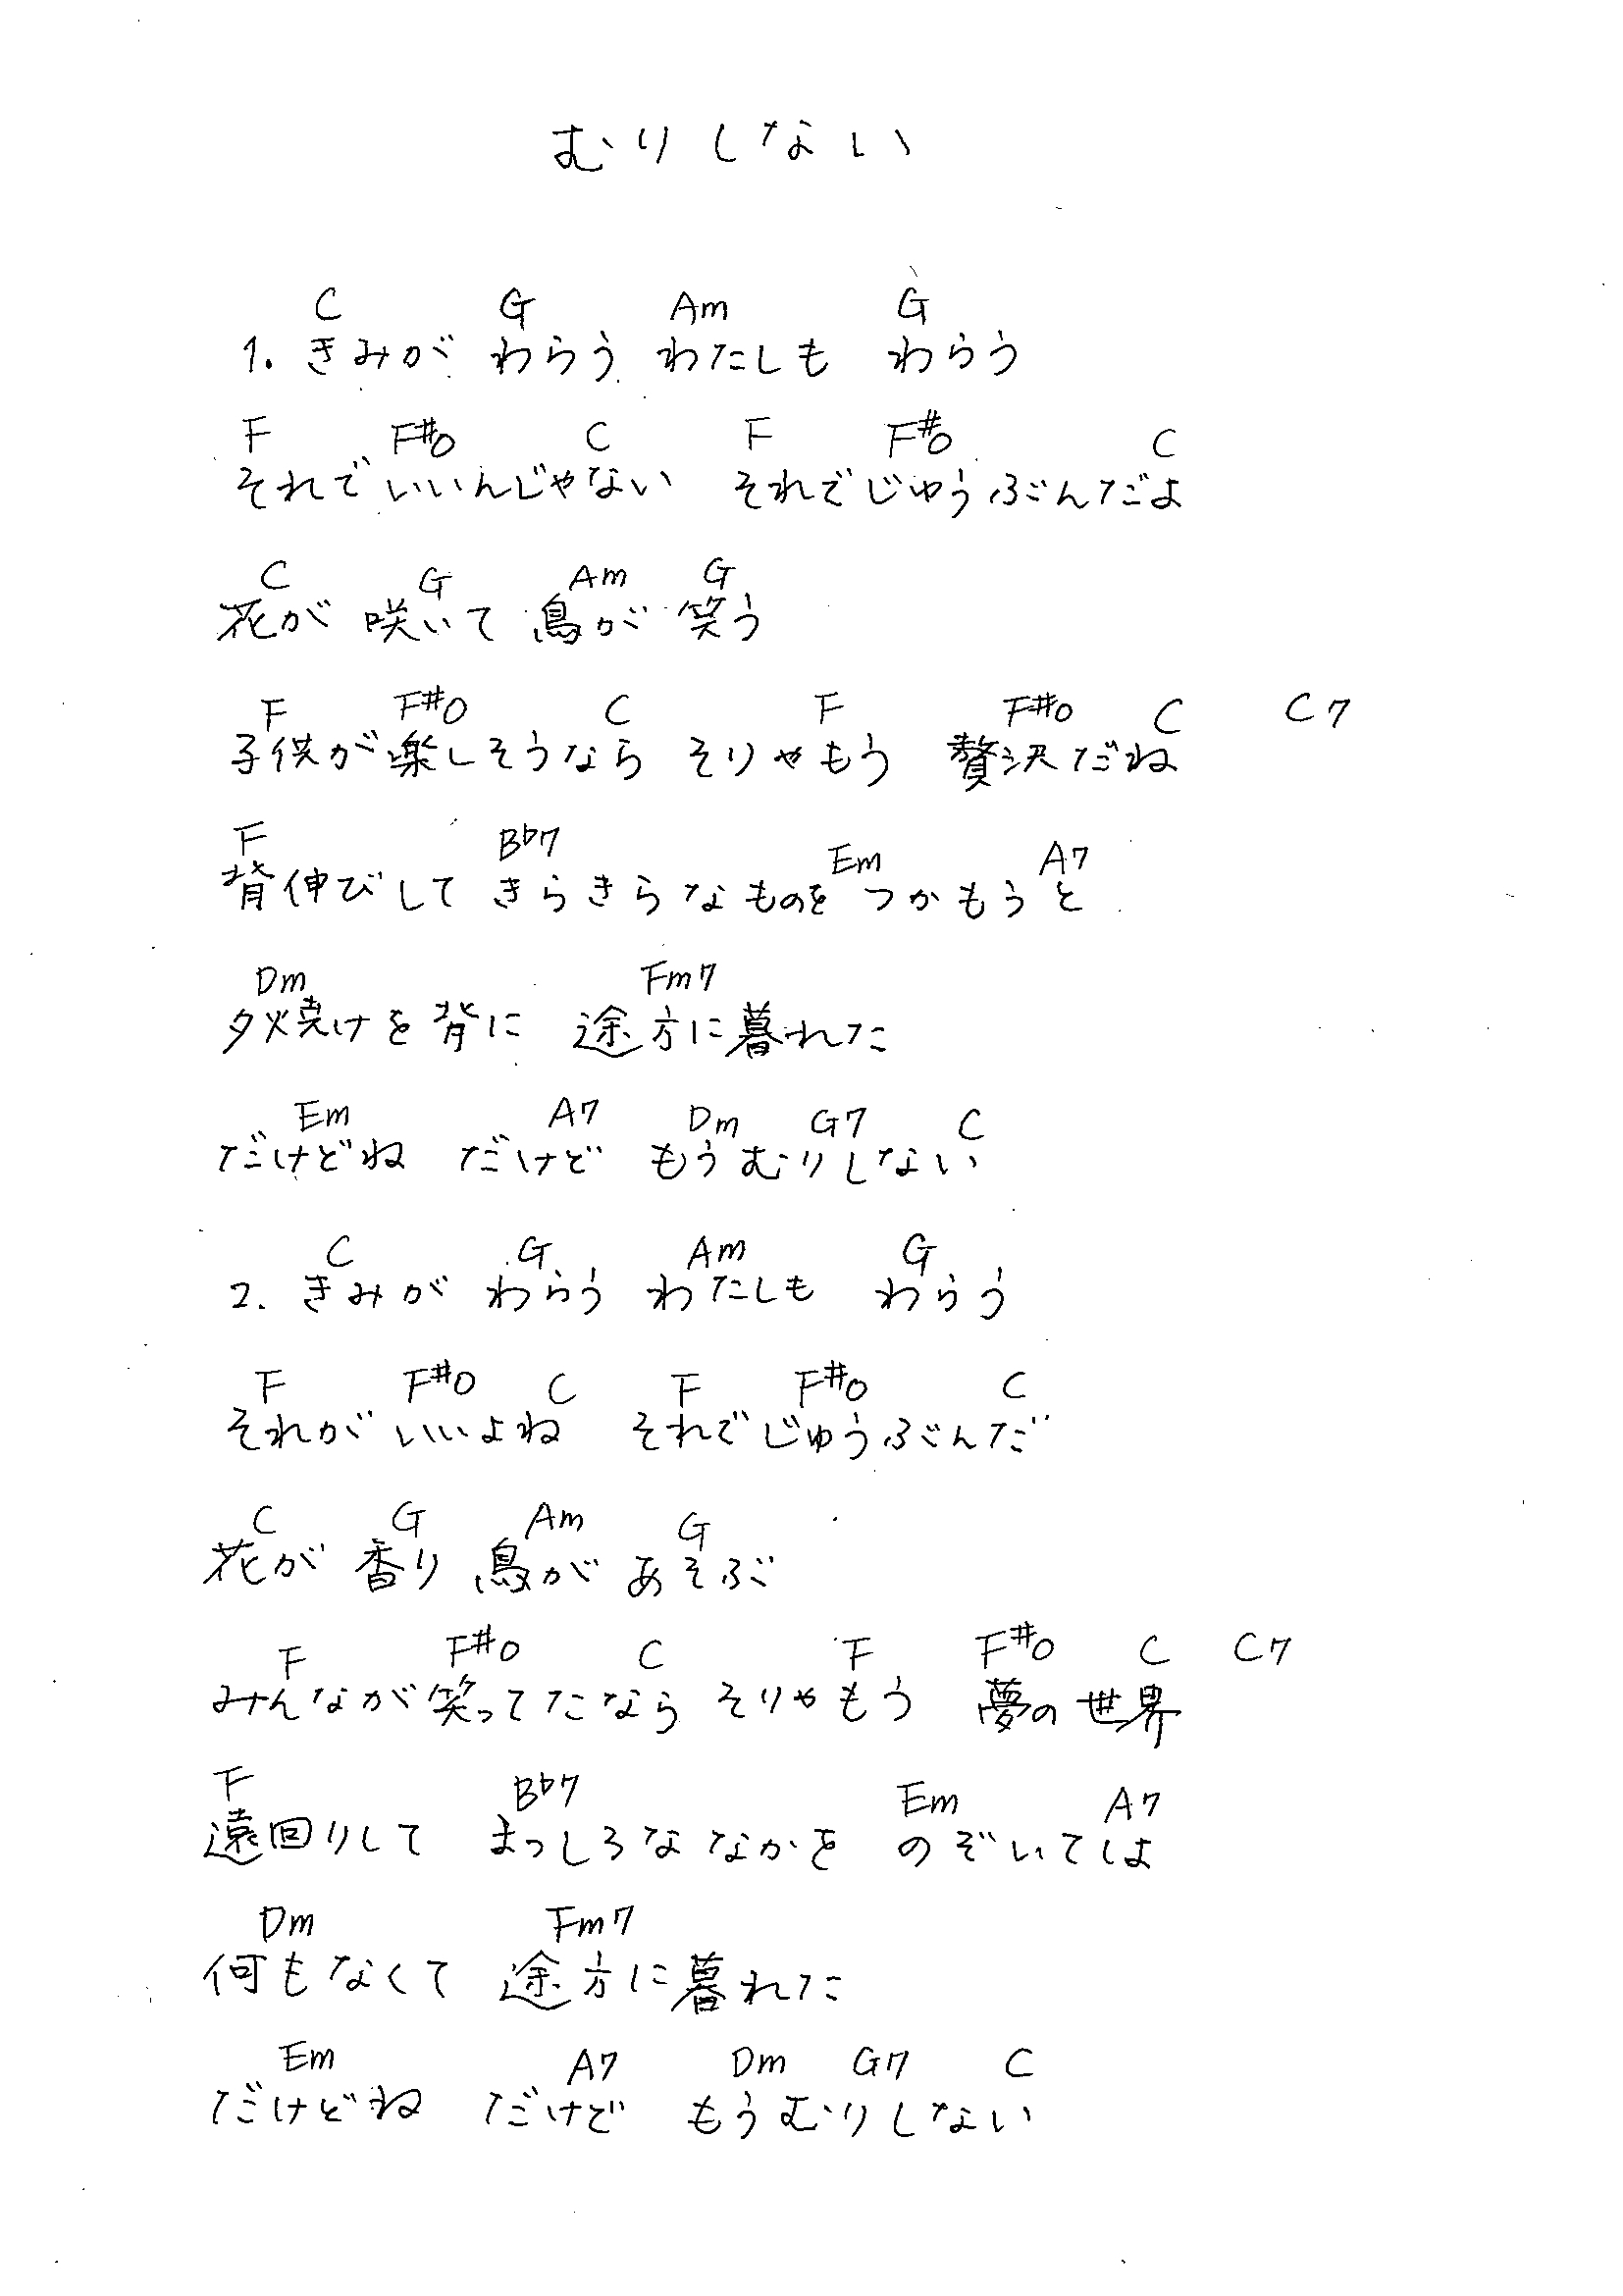 むりしない
C G Am G
1. きみが わらう わたしも わらう
F F#0 C F F#0 C
それでいいんじゃない それでじゅうぶんだよ
C G Am G
花が 咲いて 鳥が 笑う
F F#0 C F F#0 C C7
子供が楽しそうなら そりゃもう 贅沢だね
F B♭7 Em A7
背伸びして きらきらなものを つかもうと
Dm Fm7
夕焼けを背に 途方に暮れた
Em A7 Dm G7 C
だけどね だけど もうむりしない
C G Am G
2. きみが わらう わたしも わらう
F F#0 C F F#0 C
それが いいよね それでじゅうぶんだ
C G Am G
花が 香り 鳥が あそぶ
F F#0 C F F#0 C C7
みんなが笑ってたなら そりゃもう 夢の世界
F B♭7 Em A7
遠回りして まっしろななかを のぞいてしよ
Dm Fm7
何もなくて 途方に暮れた
Em A7 Dm G7 C
だけどね だけど もうむりしない